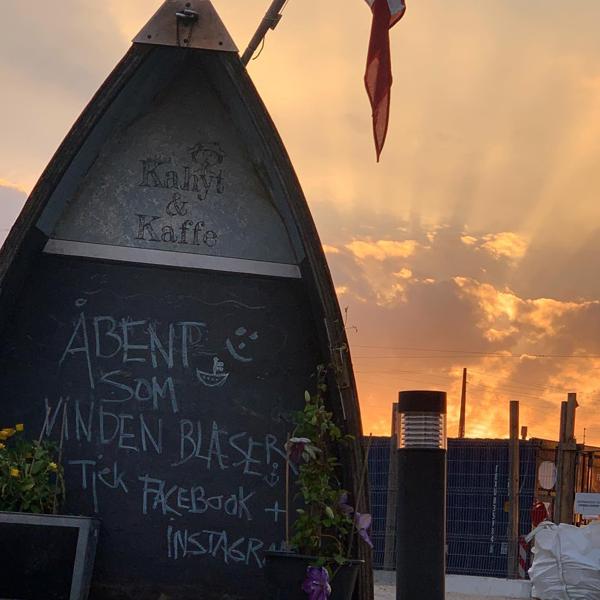 Kahyt
&
Kaffe
ÅBENT
SOM
VINDEN BLÆSER
Tjek FACEBOOK +
INSTAGR